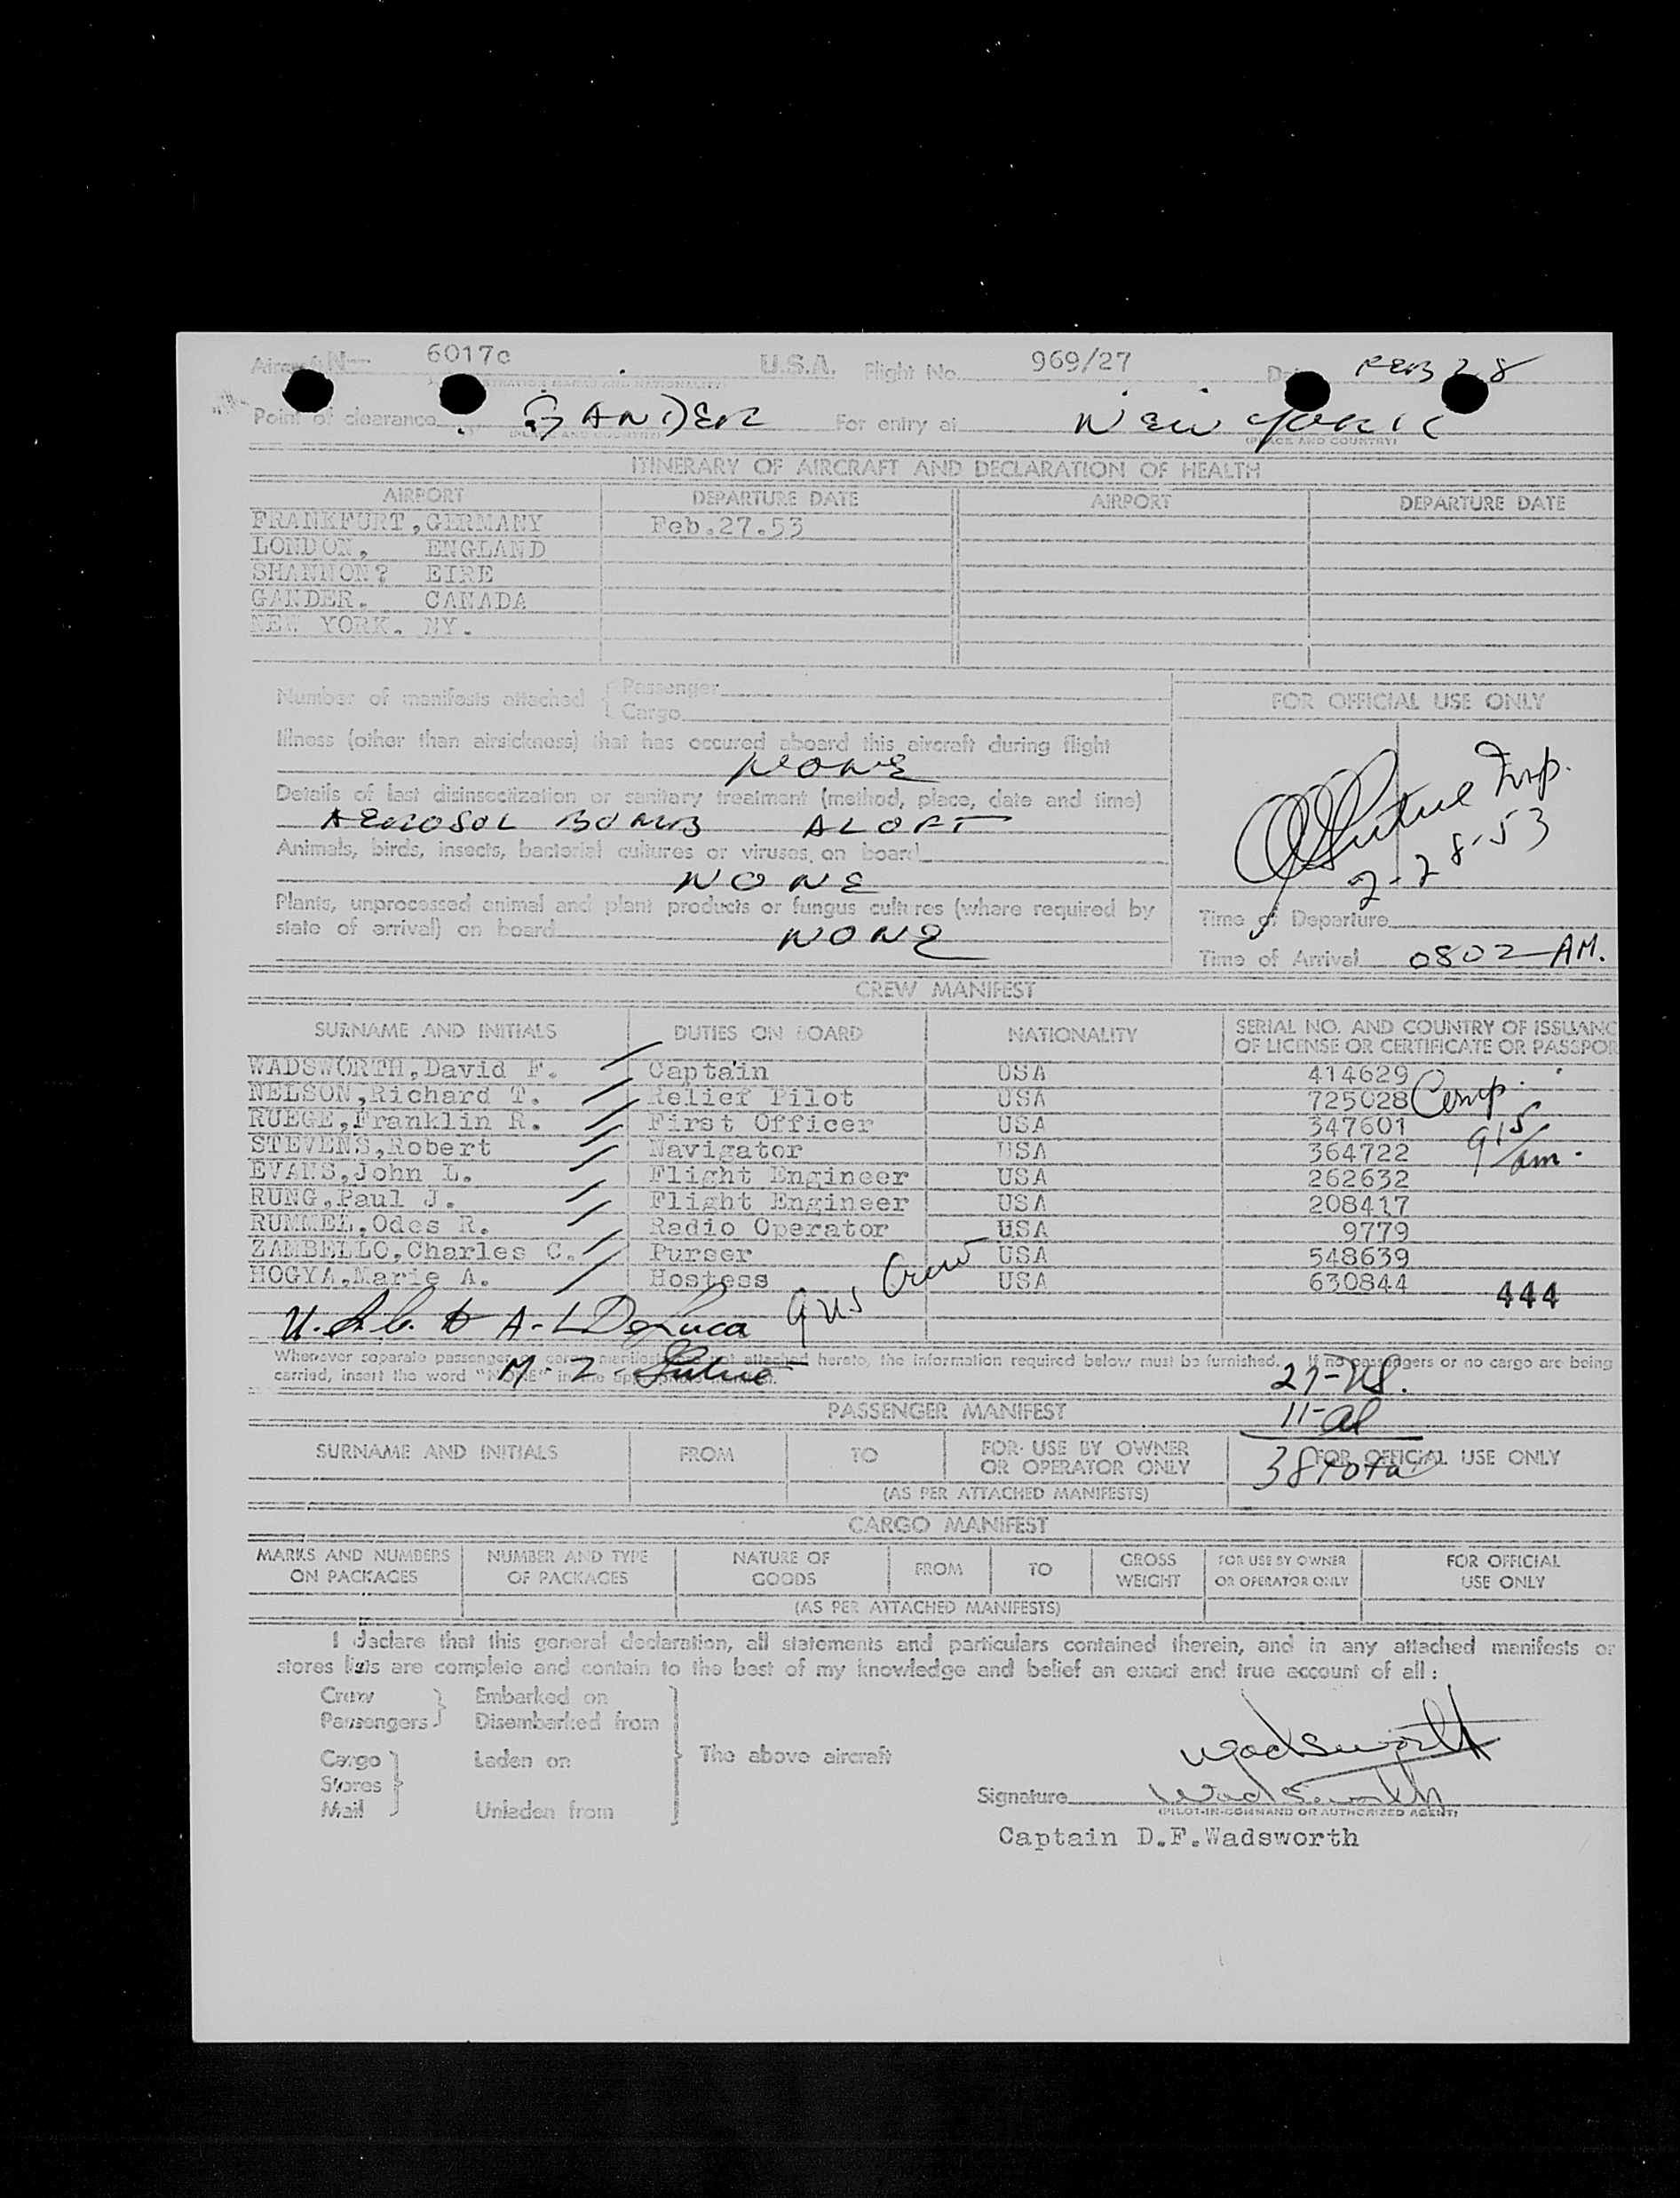 Aircraft N 6017c U.S.A. Flight No. 969/27 Date FEB 28
(REGISTRATION MARKS AND NATIONALITY)
Point of clearance GANDER For entry at NEW YORK
(PLACE AND COUNTRY) (PLACE AND COUNTRY)
ITINERARY OF AIRCRAFT AND DECLARATION OF HEALTH
AIRPORT DEPARTURE DATE AIRPORT DEPARTURE DATE
FRANKFURT,GERMANY Feb.27.53
LONDON, ENGLAND
SHANNON? EIRE
GANDER. CANADA
NEW YORK. NY.
Number of manifests attached { Passenger
Cargo
FOR OFFICIAL USE ONLY
Illness (other than airsickness) that has occured aboard this aircraft during flight
NONE
Details of last disinsectization or sanitary treatment (method, place, date and time)
AEROSOL BOMB ALOFT
Insp.
2-28-53
Animals, birds, insects, bacterial cultures or viruses on board
NONE
Plants, unprocessed animal and plant products or fungus cultures (where required by
state of arrival) on board NONE
Time of Departure
Time of Arrival 0802 AM.
CREW MANIFEST
SURNAME AND INITIALS DUTIES ON BOARD NATIONALITY SERIAL NO. AND COUNTRY OF ISSUANC
OF LICENSE OR CERTIFICATE OR PASSPOR
WADSWORTH,David F. Captain USA 414629
NELSON,Richard T. Relief Pilot USA 725028 Comp.
RUEGE,Franklin R. First Officer USA 347601
STEVENS,Robert Navigator USA 364722 915 am.
EVANS,John L. Flight Engineer USA 262632
RUNG,Paul J. Flight Engineer USA 208417
RUMMEL,Odes R. Radio Operator USA 9779
ZAMBELLO,Charles C. Purser USA 548639
HOGYA,Marie A. Hostess USA 630844
9 US Crew 444
A-L DeLuca
Whenever separate passenger or cargo manifests are not attached hereto, the information required below must be furnished. If no passengers or no cargo are being
carried, insert the word "NONE" in the appropriate manifest.
27-US.
11-al
38 total
PASSENGER MANIFEST
SURNAME AND INITIALS FROM TO FOR USE BY OWNER
OR OPERATOR ONLY FOR OFFICIAL USE ONLY
(AS PER ATTACHED MANIFESTS)
CARGO MANIFEST
MARKS AND NUMBERS
ON PACKAGES NUMBER AND TYPE
OF PACKAGES NATURE OF
GOODS FROM TO GROSS
WEIGHT FOR USE BY OWNER
OR OPERATOR ONLY FOR OFFICIAL
USE ONLY
(AS PER ATTACHED MANIFESTS)
I declare that this general declaration, all statements and particulars contained therein, and in any attached manifests or
stores lists are complete and contain to the best of my knowledge and belief an exact and true account of all:
Crew Embarked on
Passengers Disembarked from
Cargo Laden on The above aircraft
Stores
Mail Unladen from
Wadsworth
Signature Wadsworth
(PILOT-IN-COMMAND OR AUTHORIZED AGENT)
Captain D.F.Wadsworth